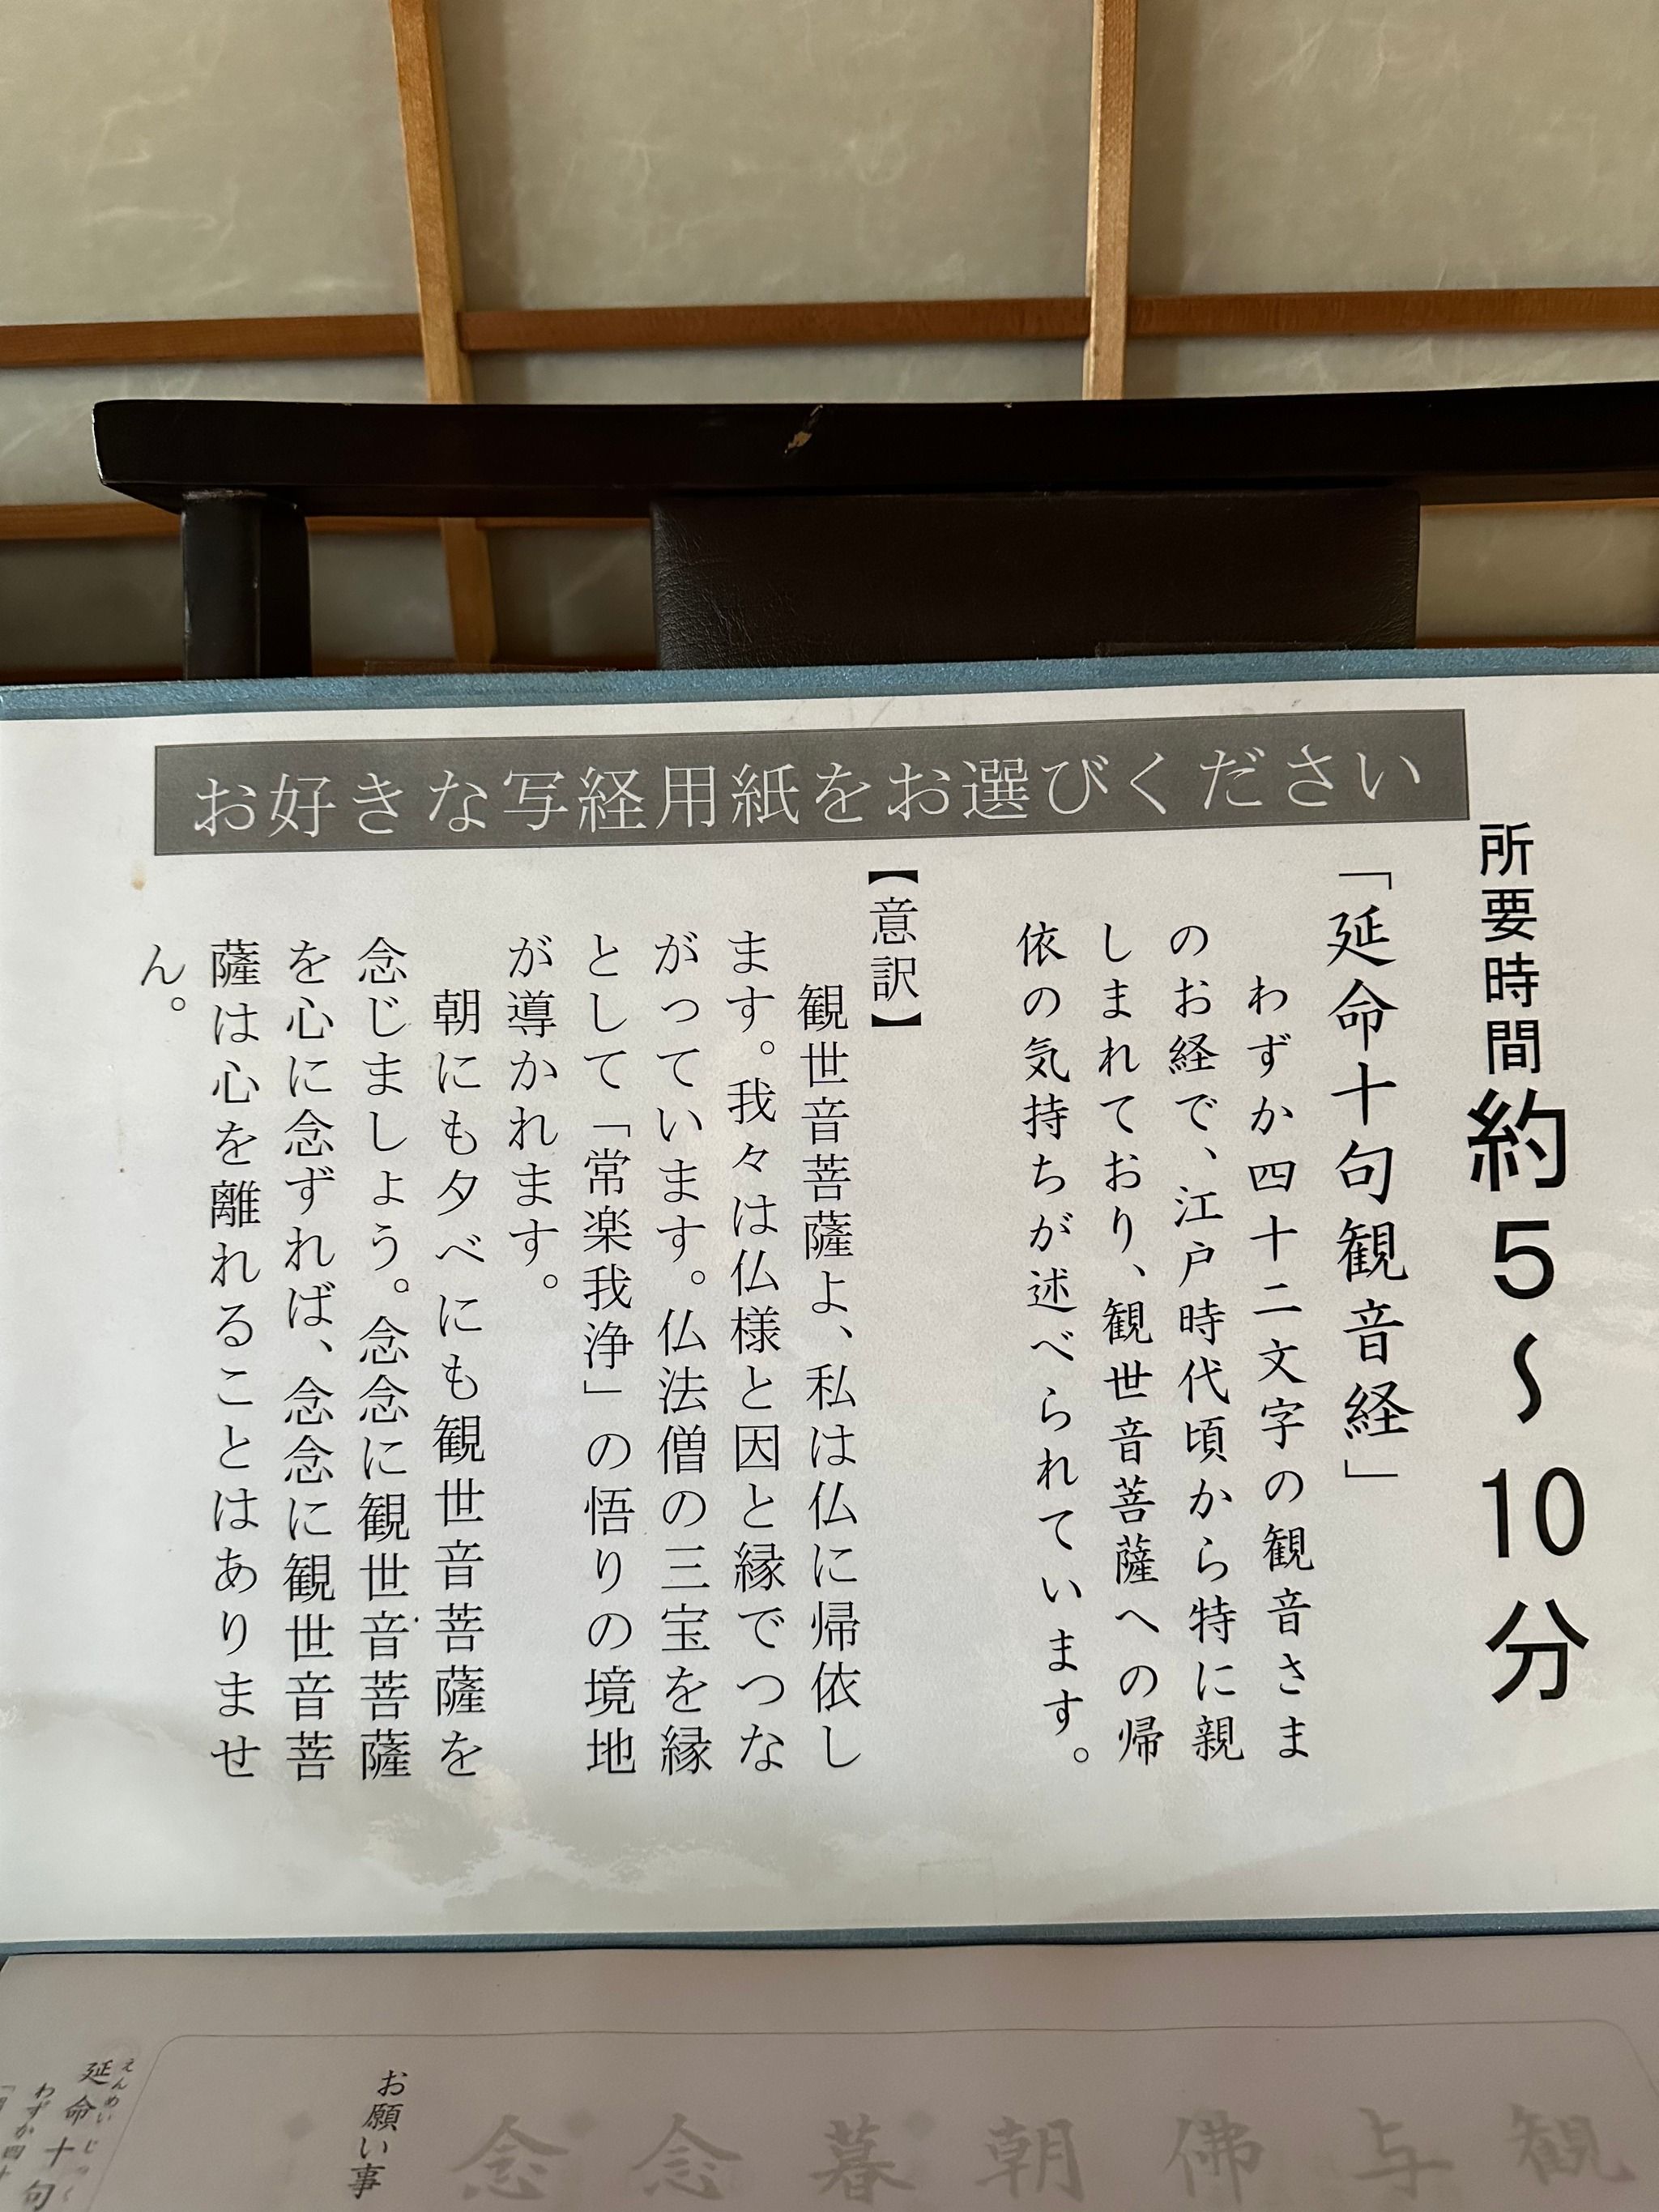 お好きな写経用紙をお選びください
所要時間約5〜10分
「延命十句観音経」
わずか四十二文字の観音さま
のお経で、江戸時代頃から特に親
しまれており、観世音菩薩への帰
依の気持ちが述べられています。
【意訳】
観世音菩薩よ、私は仏に帰依し
ます。我々は仏様と因と縁でつな
がっています。仏法僧の三宝を縁
として「常楽我浄」の悟りの境地
が導かれます。
朝にも夕べにも観世音菩薩を
念じましょう。念念に観世音菩薩
を心に念ずれば、念念に観世音菩
薩は心を離れることはありませ
ん。
観
与
佛
朝
暮
念
念
お願い事
えんめいじっく
延命十句
わずか四十